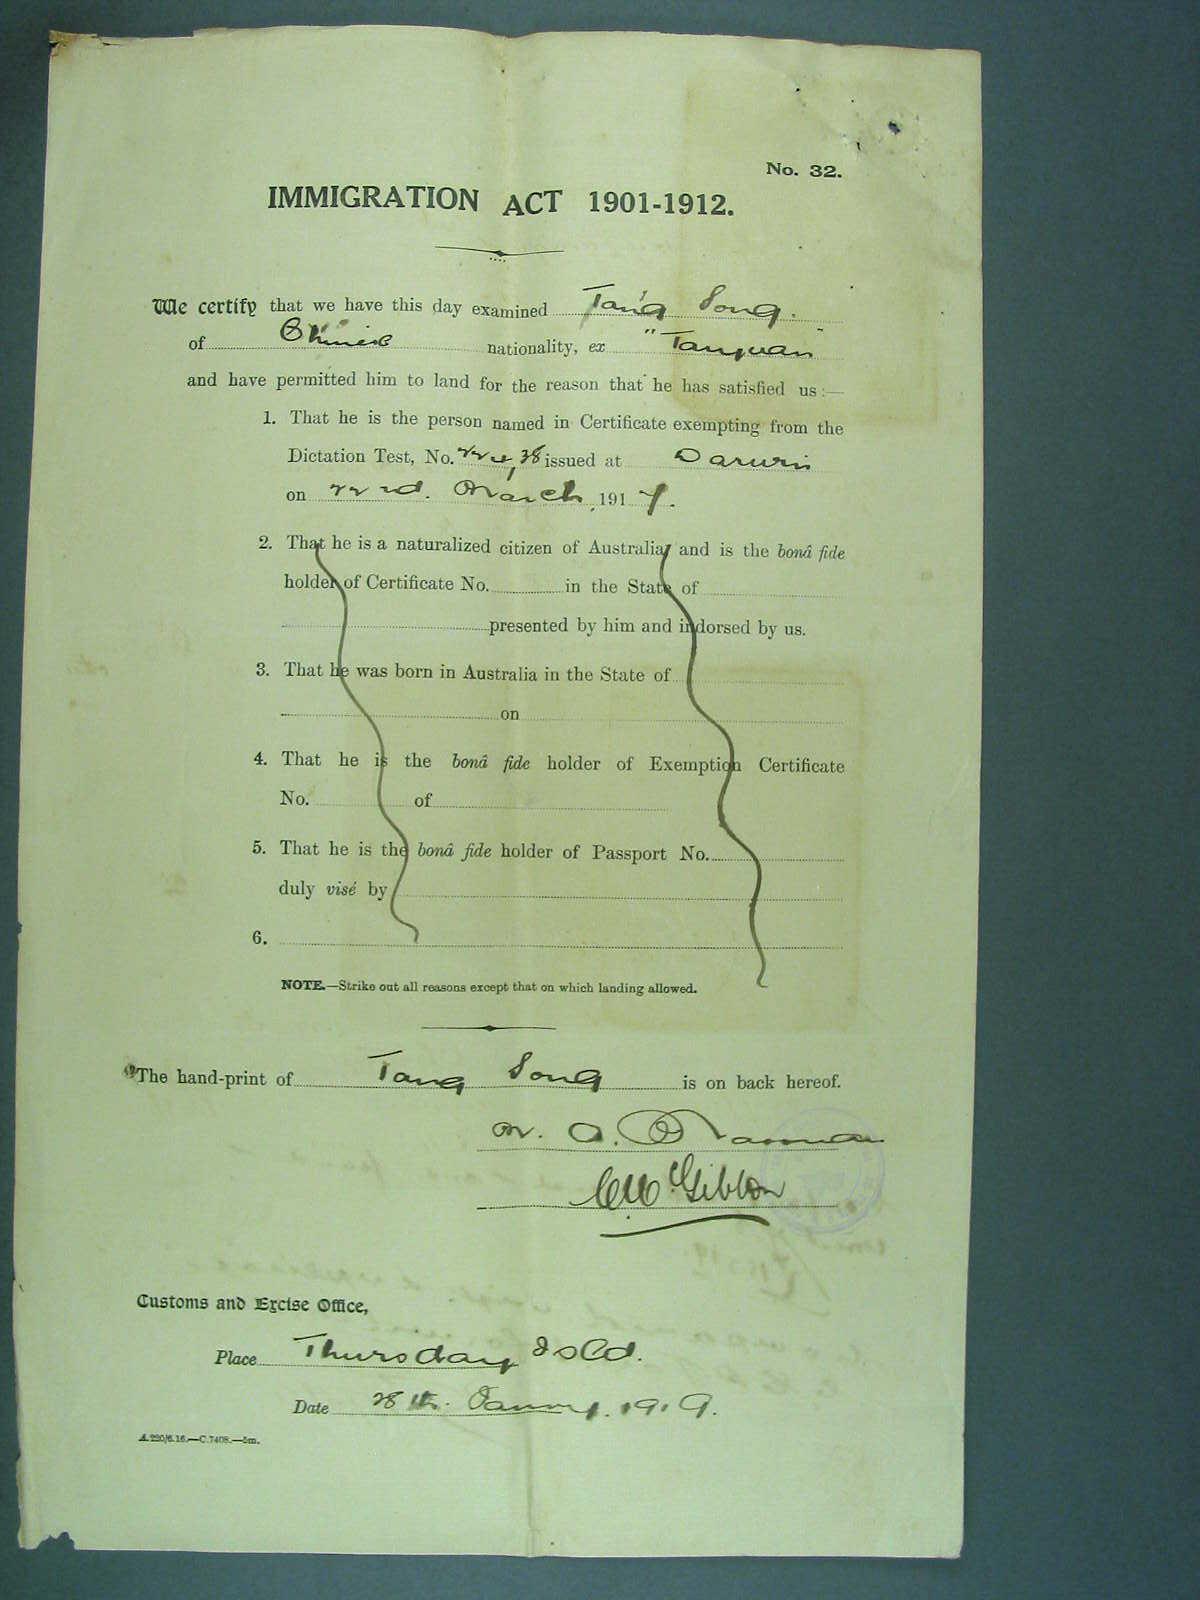 No. 32.
IMMIGRATION ACT 1901-1912.
We certify that we have this day examined Tang Song.
of Chinese nationality, ex "Taiyuan"
and have permitted him to land for the reason that he has satisfied us:—
1. That he is the person named in Certificate exempting from the
Dictation Test, No. issued at Darwin
on 22nd. March, 1917.
2. That he is a naturalized citizen of Australia, and is the bonâ fide
holder of Certificate No. in the State of
presented by him and indorsed by us.
3. That he was born in Australia in the State of
on
4. That he is the bonâ fide holder of Exemption Certificate
No. of
5. That he is the bonâ fide holder of Passport No.
duly visé by
6.
NOTE.—Strike out all reasons except that on which landing allowed.
The hand-print of Tang Song is on back hereof.
McGibbon
Customs and Excise Office,
Place Thursday Isld.
Date 28th. January. 1919.
A.220/6.16.—C.7408.—5m.